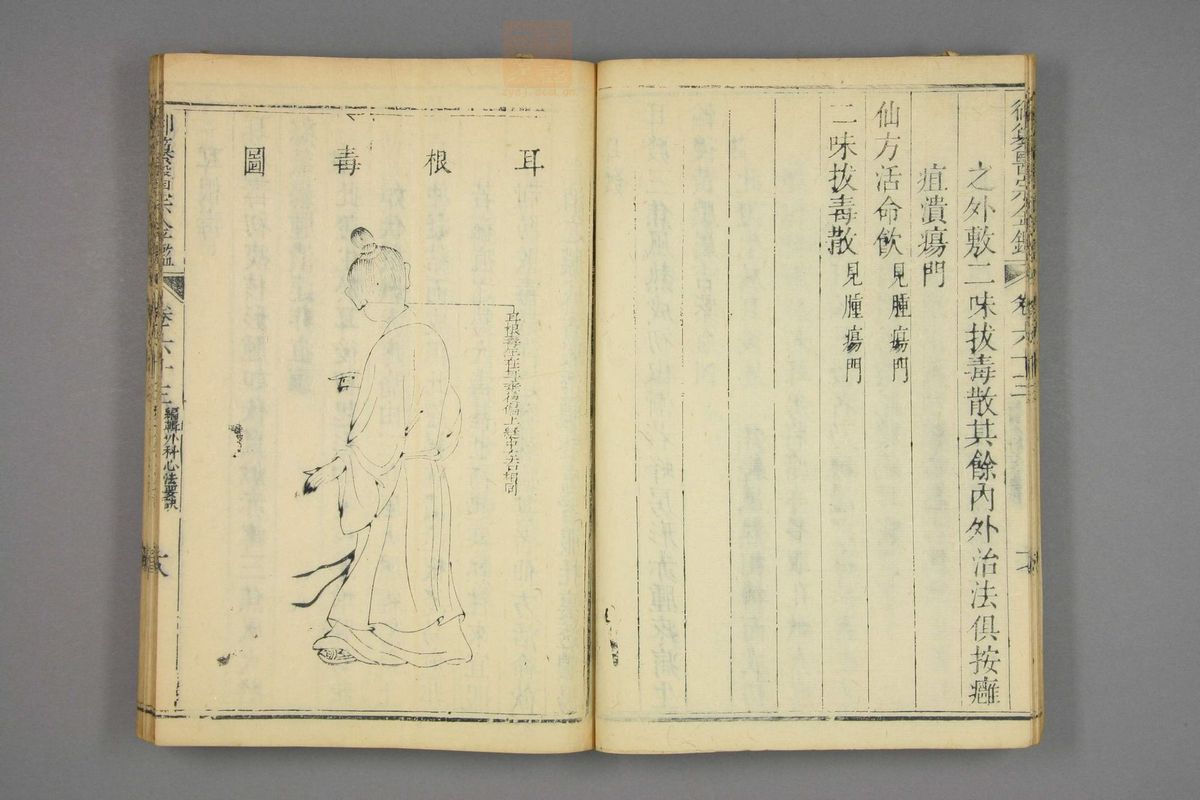 御纂醫宗金鑑 卷六十三
之外敷二味拔毒散其餘內外治法俱按癰
疽潰瘍門
仙方活命飲見腫瘍門
二味拔毒散見腫瘍門
耳根毒圖
耳根毒生在耳垂
經
相同
御纂醫宗金鑑 卷六十三 編輯外科心法要訣